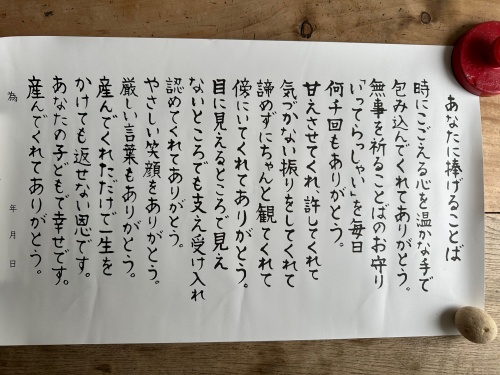 あなたに捧げることば
時にこごえる心を温かな手で
包み込んでくれてありがとう。
無事を祈ることばのお守り
「いってらっしゃい」を毎日
何千回もありがとう。
甘えさせてくれ、許してくれて
気づかない振りをしてくれて
諦めずにちゃんと観てくれて
傍にいてくれてありがとう。
目に見えるところで見え
ないところでも支え受け入れ
認めてくれてありがとう。
やさしい笑顔をありがとう。
厳しい言葉もありがとう。
産んでくれただけで一生を
かけても返せない恩です。
あなたの子どもで幸せです。
産んでくれてありがとう。
為　年　月　日